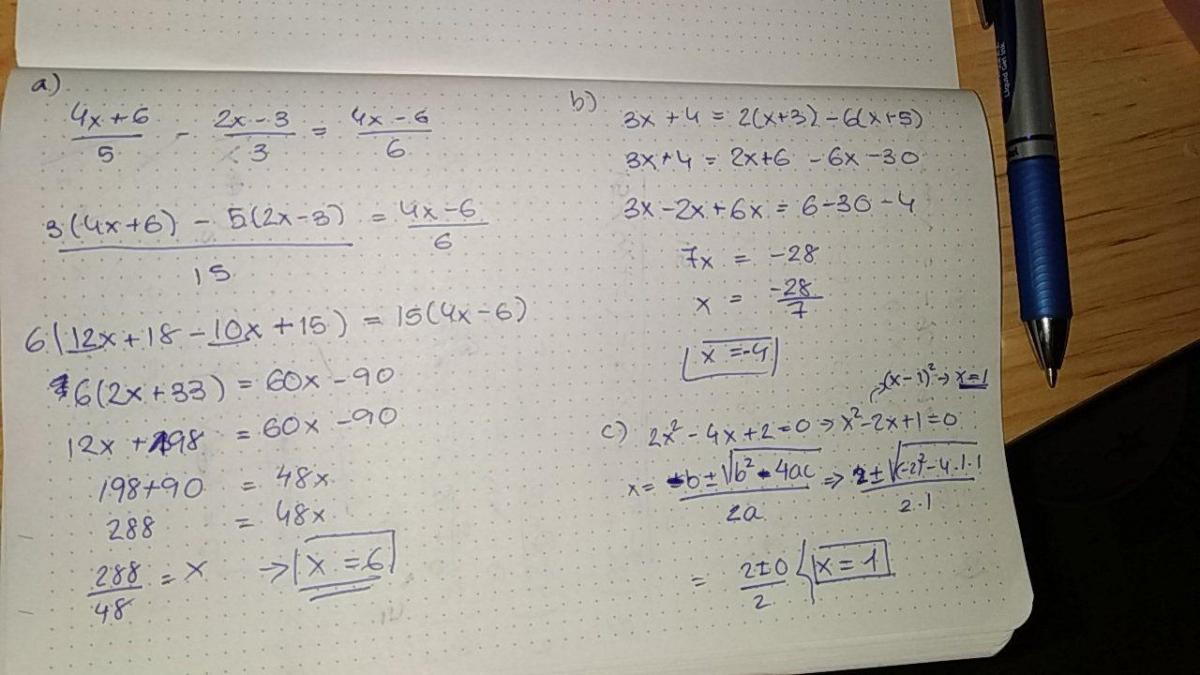 a)
4x+6/5 - 2x-3/3 = 4x-6/6
3(4x+6) - 5(2x-3)/15 = 4x-6/6
6(12x+18-10x+15) = 15(4x-6)
6(2x+33) = 60x-90
12x+198 = 60x-90
198+90 = 48x
288 = 48x
288/48 = x → x=6
b)
3x+4 = 2(x+3)-6(x+5)
3x+4 = 2x+6-6x-30
3x-2x+6x = 6-30-4
7x = -28
x = -28/7
x=-4
(x-1)² → x=1
c) 2x²-4x+2=0 → x²-2x+1=0
x= -b±√b²-4ac/2a ⇒ 2±√(-2)²-4·1·1/2·1
= 2±0/2 { x=1
Liquid Gel Ink